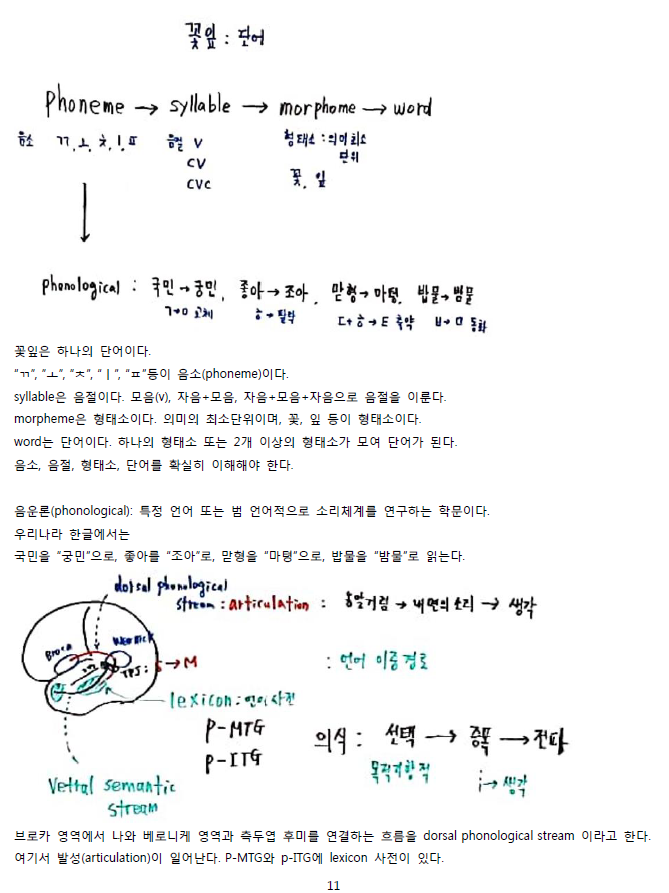 꽃잎 : 단어
Phoneme → syllable → morphome → word
음소 ㄲ, ㅗ, ㅊ, ㅣ, ㅍ 음절 V 형태소 : 의미 최소
단위
CV
CVC 꽃, 잎
phonological : 국민 → 궁민, 좋아 → 조아, 맏형 → 마텽, 밥물 → 밤물
ㄱ→ㅇ 교체 ㅎ→탈락 ㄷ+ㅎ→ㅌ 축약 ㅂ→ㅁ 동화
꽃잎은 하나의 단어이다.
"ㄲ", "ㅗ", "ㅊ", "ㅣ", "ㅍ"등이 음소(phoneme)이다.
syllable은 음절이다. 모음(v), 자음+모음, 자음+모음+자음으로 음절을 이룬다.
morpheme은 형태소이다. 의미의 최소단위이며, 꽃, 잎 등이 형태소이다.
word는 단어이다. 하나의 형태소 또는 2개 이상의 형태소가 모여 단어가 된다.
음소, 음절, 형태소, 단어를 확실히 이해해야 한다.
음운론(phonological): 특정 언어 또는 범 언어적으로 소리체계를 연구하는 학문이다.
우리나라 한글에서는
국민을 "궁민"으로, 좋아를 "조아"로, 맏형을 "마텽"으로, 밥물을 "밤물"로 읽는다.
dorsal phonological
stream : articulation : 옹알거림 → 내면의 소리 → 생각
Broca Wernick
TPJ : S → M : 언어 이중경로
lexicon : 언어사전
P-MTG
P-ITG
의식 : 선택 → 증폭 → 전파
목적지향적 i → 생각
Vettal semantic
stream
브로카 영역에서 나와 베로니케 영역과 측두엽 후미를 연결하는 흐름을 dorsal phonological stream 이라고 한다.
여기서 발성(articulation)이 일어난다. P-MTG와 p-ITG에 lexicon 사전이 있다.
11